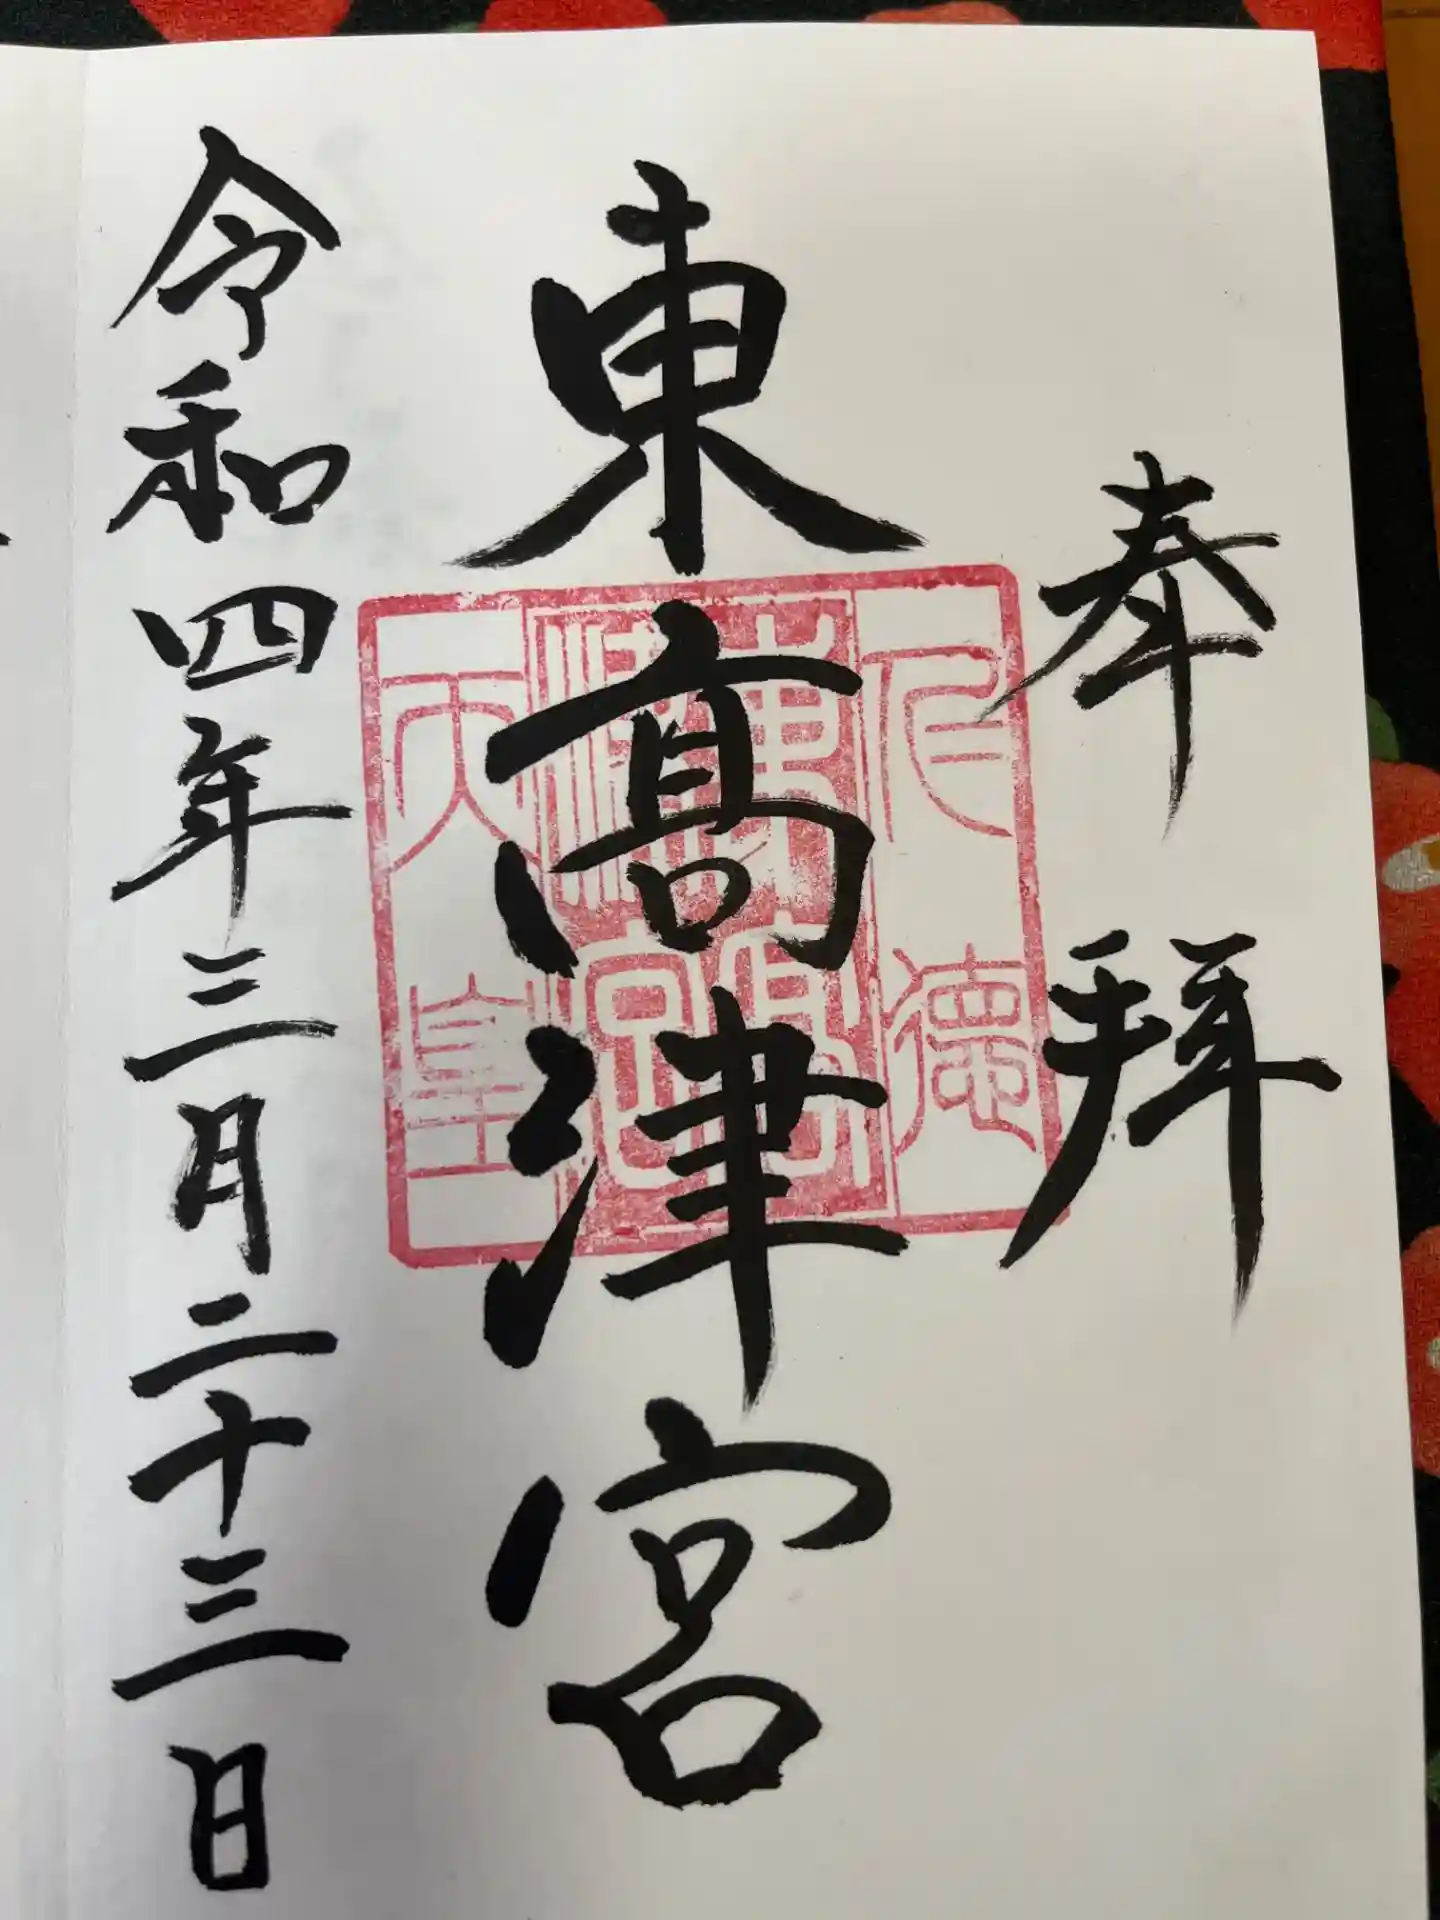 奉拜
東髙津宮
仁徳
東高
津宮
天皇
令和四年三月二十三日